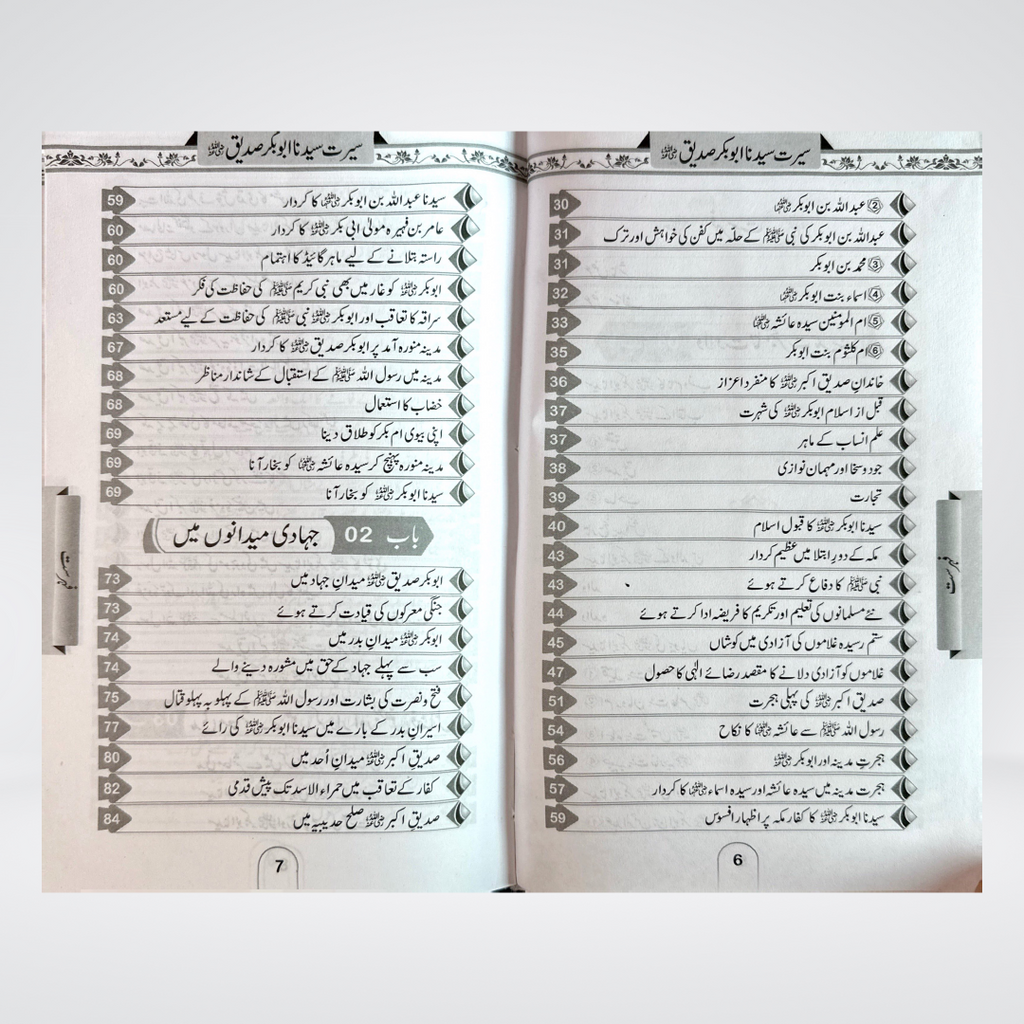 سیرت سیدنا ابوبکر صدیق رضی اللہ عنہ
② عبداللہ بن ابوبکر رضی اللہ عنہما 30
عبداللہ بن ابوبکر کی نبی ﷺ کے حلّہ میں کفن کی خواہش اور ترک 31
③ محمد بن ابوبکر 31
④ اسماء بنت ابوبکر رضی اللہ عنہا 32
⑤ ام المومنین سیدہ عائشہ رضی اللہ عنہا 33
⑥ ام کلثوم بنت ابوبکر 35
خاندانِ صدیق اکبر رضی اللہ عنہ کا منفرد اعزاز 36
قبل از اسلام ابوبکر رضی اللہ عنہ کی شہرت 37
علم انساب کے ماہر 37
جود و سخا اور مہمان نوازی 38
تجارت 39
سیدنا ابوبکر رضی اللہ عنہ کا قبول اسلام 40
مکہ کے دورِ ابتلا میں عظیم کردار 43
نبی ﷺ کا دفاع کرتے ہوئے 43
نئے مسلمانوں کی تعلیم اور تکریم کا فریضہ ادا کرتے ہوئے 44
ستم رسیدہ غلاموں کی آزادی میں کوشاں 45
غلاموں کو آزادی دلانے کا مقصد رضائے الٰہی کا حصول 47
صدیق اکبر رضی اللہ عنہ کی پہلی ہجرت 51
رسول اللہ ﷺ سے عائشہ رضی اللہ عنہا کا نکاح 54
ہجرتِ مدینہ اور ابوبکر رضی اللہ عنہ 56
ہجرت مدینہ میں سیدہ عائشہ اور سیدہ اسماء رضی اللہ عنہما کا کردار 57
سیدنا ابوبکر رضی اللہ عنہ کا کفار مکہ پر اظہار افسوس 59
فہرست
6
سیرت سیدنا ابوبکر صدیق رضی اللہ عنہ
سیدنا عبداللہ بن ابوبکر رضی اللہ عنہما کا کردار 59
عامر بن فہیرہ مولیٰ ابی بکر رضی اللہ عنہ کا کردار 60
راستہ بتلانے کے لیے ماہر گائیڈ کا اہتمام 60
ابوبکر رضی اللہ عنہ کو غار میں بھی نبی کریم ﷺ کی حفاظت کی فکر 60
سراقہ کا تعاقب اور ابوبکر رضی اللہ عنہ نبی ﷺ کی حفاظت کے لیے مستعد 63
مدینہ منورہ آمد پر ابوبکر صدیق رضی اللہ عنہ کا کردار 67
مدینہ میں رسول اللہ ﷺ کے استقبال کے شاندار مناظر 68
خضاب کا استعمال 68
اپنی بیوی ام بکر کو طلاق دینا 69
مدینہ منورہ پہنچ کر سیدہ عائشہ رضی اللہ عنہا کو بخار آنا 69
سیدنا ابوبکر رضی اللہ عنہ کو بخار آنا 69
باب 02 جہادی میدانوں میں
ابوبکر صدیق رضی اللہ عنہ میدانِ جہاد میں 73
جنگی معرکوں کی قیادت کرتے ہوئے 73
ابوبکر رضی اللہ عنہ میدانِ بدر میں 74
سب سے پہلے جہاد کے حق میں مشورہ دینے والے 74
فتح و نصرت کی بشارت اور رسول اللہ ﷺ کے پہلو بہ پہلو قتال 75
اسیرانِ بدر کے بارے میں سیدنا ابوبکر رضی اللہ عنہ کی رائے 77
صدیقِ اکبر رضی اللہ عنہ میدانِ اُحد میں 80
کفار کے تعاقب میں حمراء الاسد تک پیش قدمی 82
صدیقِ اکبر رضی اللہ عنہ صلح حدیبیہ میں 84
فہرست
7